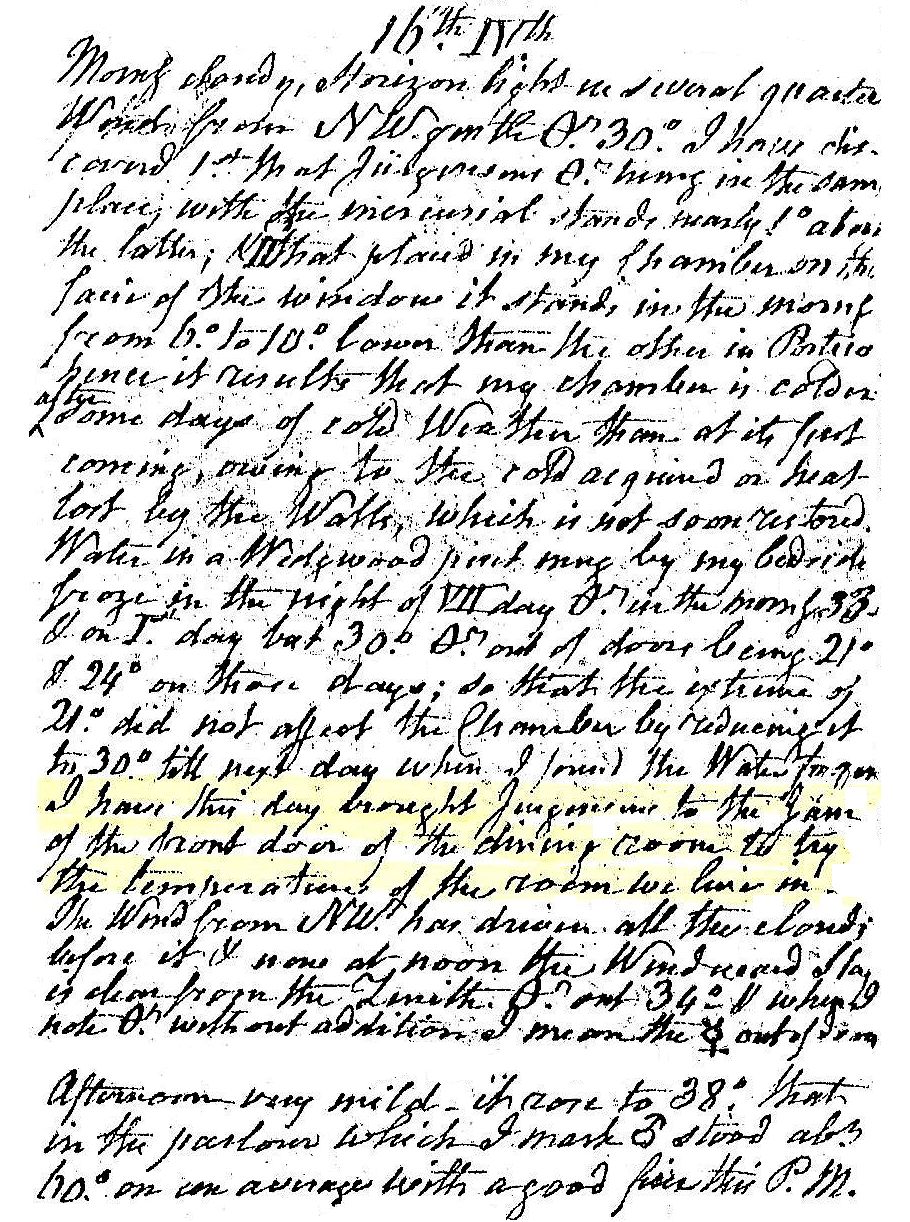 16th IVth
Morng cloudy, Horizon light in several quarte
Wind from NW. gentle Θr 30.° I have dis-
coverd 1st that Jurgensens Θr hung in the same
place, with the mercurial stands nearly 1° abov
the latter; VII that placed in my Chamber on the
facie of the window it stands in the morng
from 6.° to 10.° lower than the other in Portico
hence it results that my chamber is colder
after
some days of cold Weather than at its first
coming, owing to the cold acquired or heat
lost by the Walls, which is not soon restored.
Water in a Wedgwood pint mug by my bedside
froze in the night of VII day Θr in the morng 33.
& on Ist day bat 30.° Θr out of doors being 21°
& 24° on those days; so that the extreme of
21.° did not affect the Chamber by reducing it
to 30.° till next day when I found the Water frozen
I have this day brought Jurgensens to the Jam
of the front door of the dining room to try
the temperature of the room we live in.
The Wind from NW. has driven all the clouds
before it & now at noon the Windward Sky
is clear from the Zenith. Θr out 34° & when I
note Θr without addition I mean the ☿ out of door
Afternoon very mild - it rose to 38.° that
in the parlour which I mark stood abt
60.° on an average with a good fire this P. M.